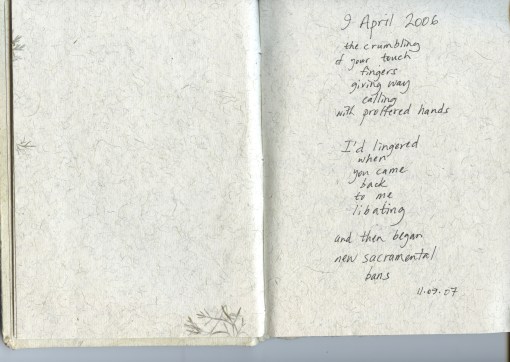 9 April 2006
the crumbling
of your touch
fingers
giving way
calling
with proffered hands
I'd lingered
when
you came
back
to me
libating
and then began
new sacramental
bans
11.09.07